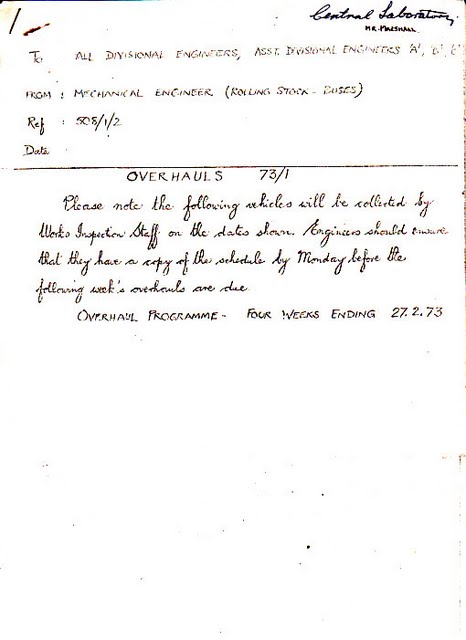 1
Central Laboratory
MR. MARSHALL.
To ALL DIVISIONAL ENGINEERS, ASST. DIVISIONAL ENGINEERS 'A', 'B', 'C'
FROM : MECHANICAL ENGINEER (ROLLING STOCK - BUSES)
Ref : 508/1/2
Date
OVERHAULS 73/1
Please note the following vehicles will be collected by
Works Inspection Staff on the dates shown. Engineers should ensure
that they have a copy of the schedule by Monday before the
following week's overhauls are due
OVERHAUL PROGRAMME - FOUR WEEKS ENDING 27.2.73